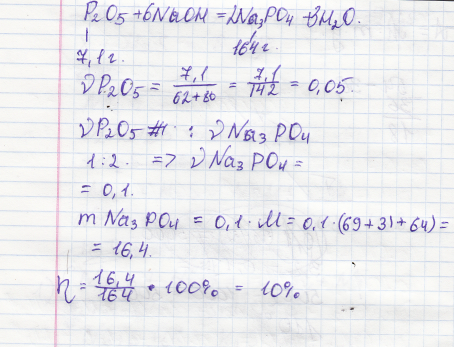 P₂O₅ + 6NaOH = 2Na₃PO₄ + 3H₂O.
7,1 г. 164 г.
ν P₂O₅ = 7,1/(62+80) = 7,1/142 = 0,05.
ν P₂O₅ : ν Na₃PO₄
1:2. => ν Na₃PO₄ =
= 0,1.
m Na₃PO₄ = 0,1 · M = 0,1 · (69+31+64) =
= 16,4.
η = 16,4/164 · 100% = 10%